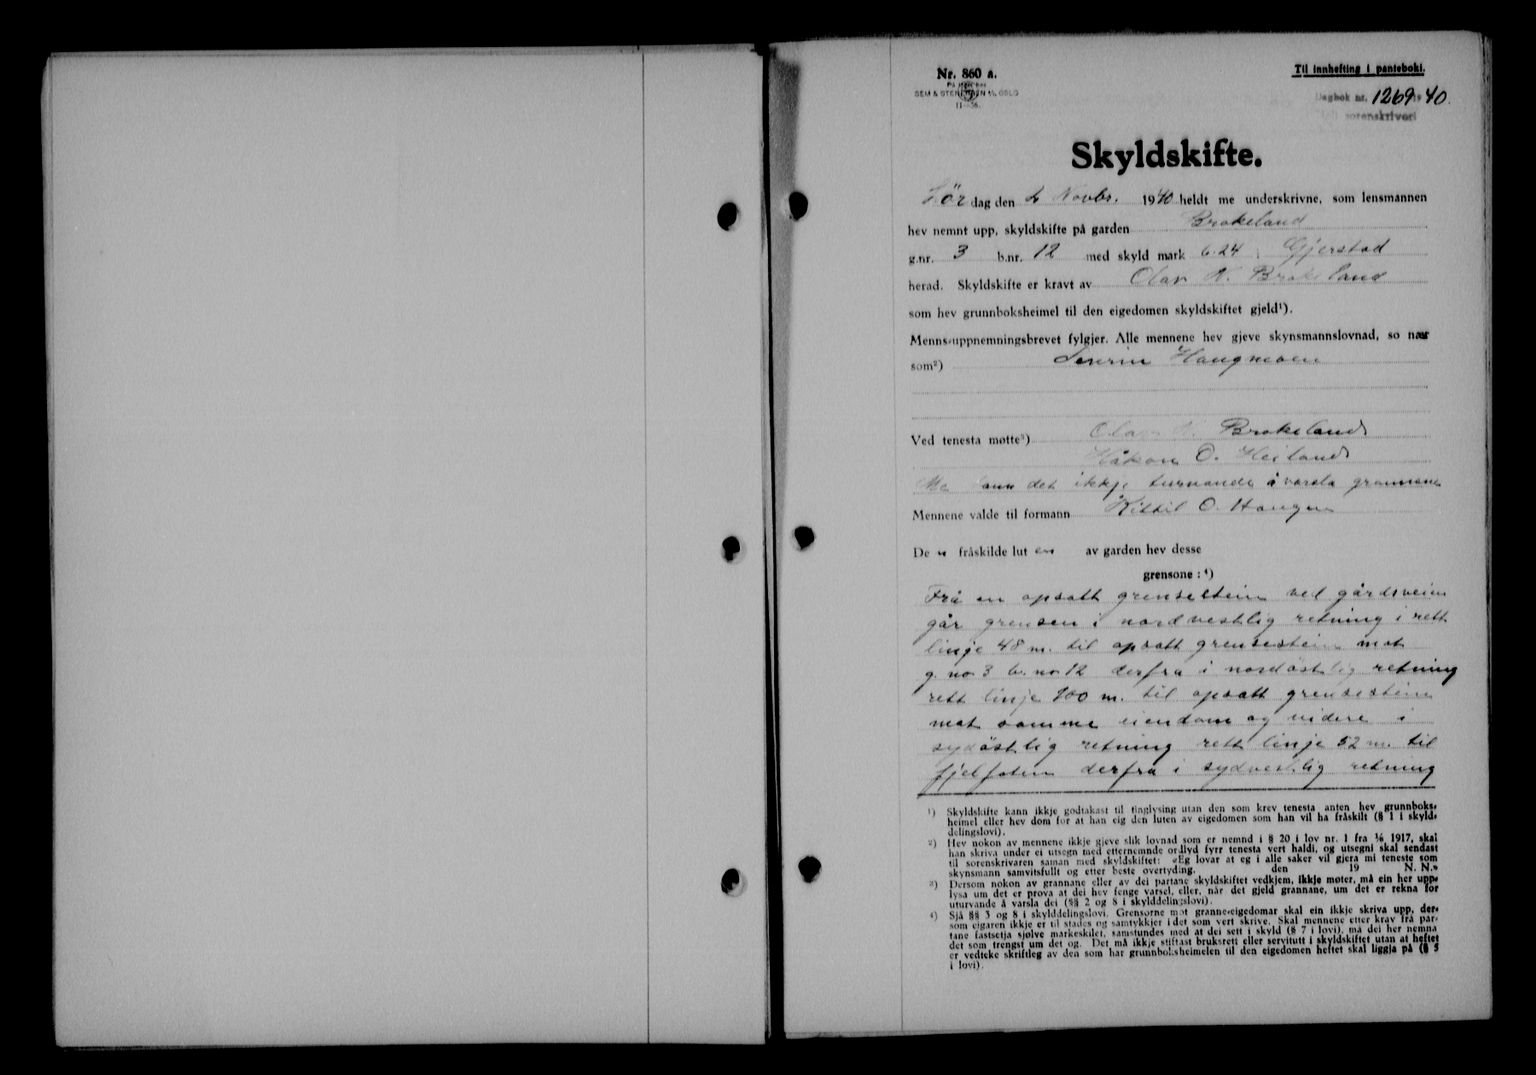 Nr. 860 a.
Til innhefting i panteboki.
SEM & STENERSEN A/S, OSLO
Dagbok nr. 1269 19 40.
sorenskriveri
Skyldskifte.
Lör dag den 2 Novbr. 1940 heldt me underskrivne, som lensmannen
hev nemnt upp, skyldskifte på garden Brokeland
g.nr. 3 b.nr. 12 med skyld mark 6.24 i Gjerstad
herad. Skyldskifte er kravt av Olav N. Brokeland
som hev grunnboksheimel til den eigedomen skyldskiftet gjeld¹).
Menns-uppnemningsbrevet fylgjer. Alle mennene hev gjeve skynsmannslovnad, so nær
som²) Severin Haugmoen
Ved tenesta møtte³) Olav N. Brokeland
Håkon O. Heiland
Me fann det ikkje turvande å varsla grannene
Mennene valde til formann Kittil O. Haugen
De n fråskilde lut en av garden hev desse
grensone : ⁴)
Frå en opsatt grensestein ved gårdsveien
går grensen i nordvestlig retning i rett
linje 48 m. til opsatt grensestein mot
g. no 3 br. no 12 derfra i nordöstlig retning
rett linje 100 m. til opsatt grensestein
mot samme eiendom og videre i
sydöstlig retning rett linje 52 m. til
fjelfoten derfra i sydvestlig retning
¹) Skyldskifte kann ikkje godtakast til tinglysing utan den som krev tenesta anten hev grunnboks-
heimel eller hev dom for at han eig den luten av eigedomen som han vil ha fråskilt (§ 1 i skyld-
delingslovi).
²) Hev nokon av mennene ikkje gjeve slik lovnad som er nemnd i § 20 i lov nr. 1 fra 1917, skal
han skriva under ei utsegn med etternemnde ordlyd fyrr tenesta vert haldi, og utsegni skal sendast
til sorenskrivaren saman med skyldskiftet: «Eg lovar at eg i alle saker vil gjera mi teneste som
skynsmann samvitsfullt og etter beste overtyding. den 19 N. N.»
³) Dersom nokon av grannane eller av dei partane skyldskiftet vedkjem, ikkje møter, må ein her upp-
lysa um det er prova at dei hev fenge varsel, eller, når det gjeld grannane, um det er rekna for
uturvande å varsla dei (§§ 2 og 8 i skylddelingslovi).
⁴) Sjå §§ 3 og 8 i skylddelingslovi. Grensorne mot granne-eigedomar skal ein ikkje skriva upp, der-
som eigaren ikkje er til stades og samtykkjer i det som vert skrive. Skal mennene etter krav frå par-
tane fastsetja sjølve markeskilet, samstundes med at dei sett i skyld (§ 7 i lovi), må dei her nemna
det som trengst um det og. Det må ikkje stiftast bruksrett eller servitutt i skyldskiftet utan at heftet
er vedteke skriftleg av den som har grunnboksheimelen til den eigedomen heftet skal liggja på (§ 5
i lovi).